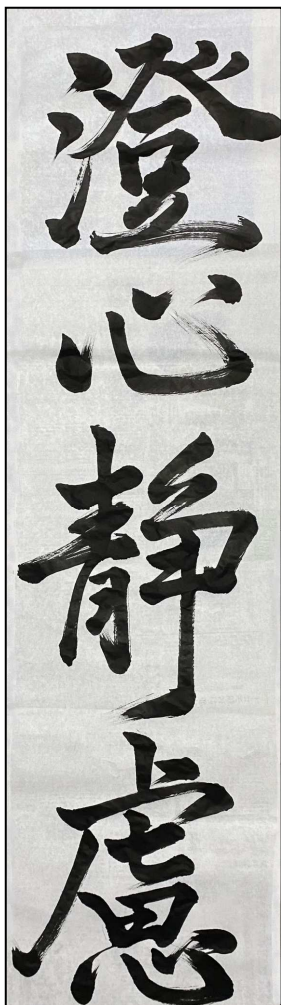 澄心静慮